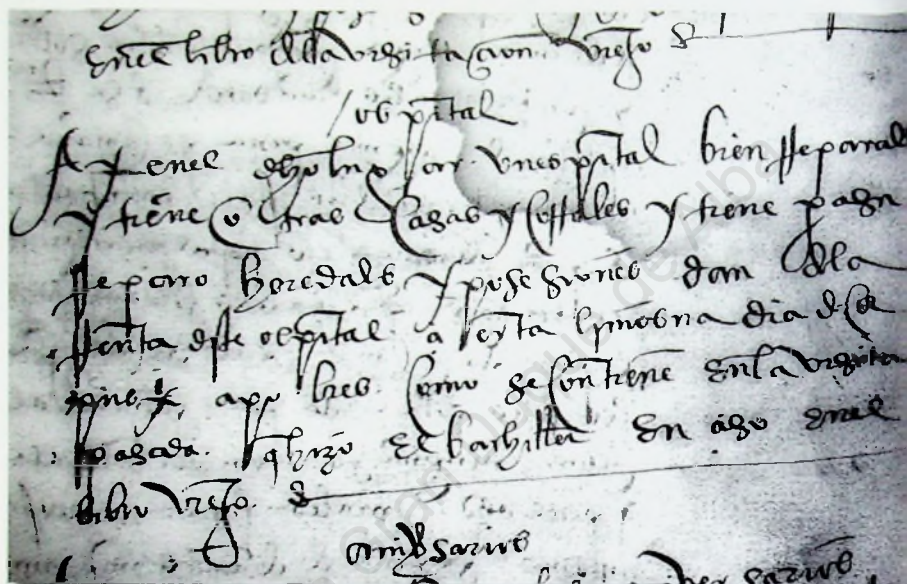 enel libro dla vysitaçion viejo
ospital
Ay enel dho lugar un espital bien rreparado
y tiene otras casas y corrales y tiene para su
rreparo heredads y posesiones dan dla
rrenta dste ospital a çierta limosna dia de
apobres como se contiene enla vysitaçion
pasada q hizo el bachiller en año enel
libro viejo
anivsarios